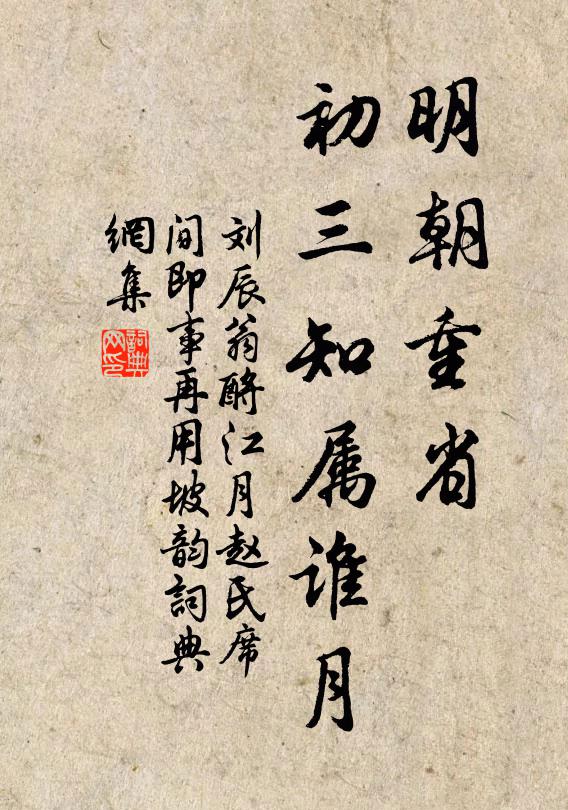 明朝重省
初三知属谁月
刘辰翁酹江月赵氏席
间即事再用坡韵詞典
網集
詞典網印